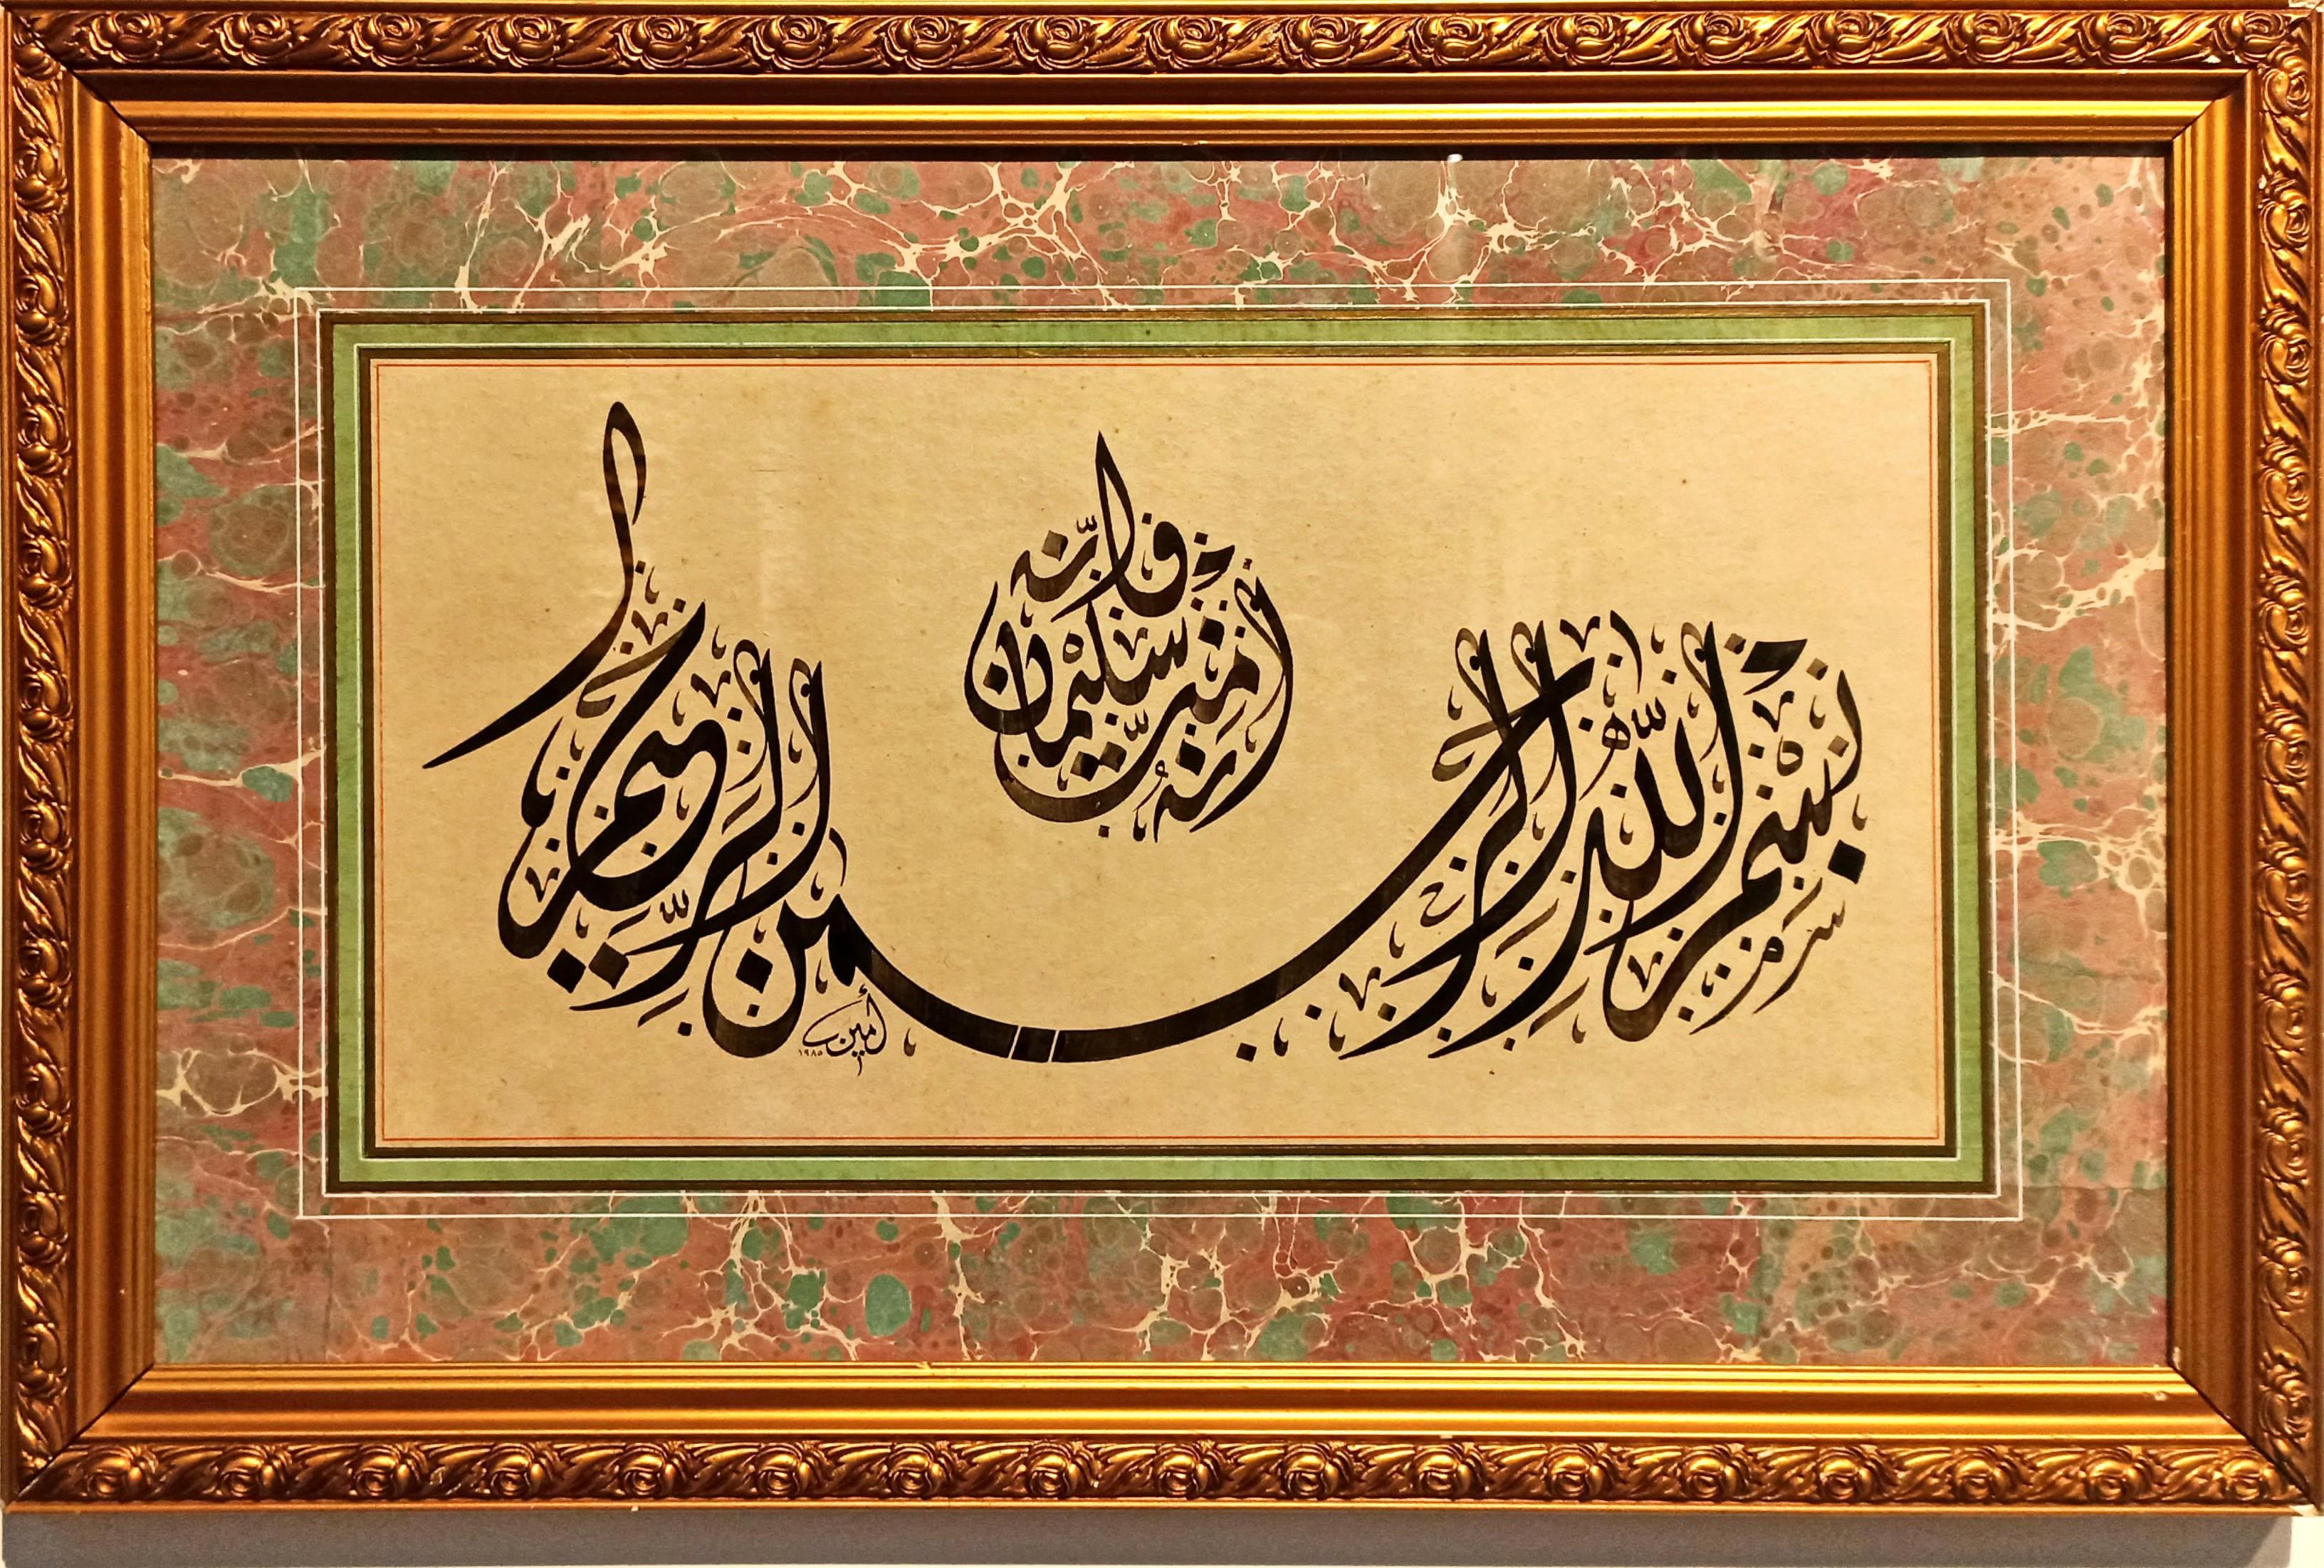 إنه من سليمان وإنّه
بسم الله الرحمن الرحيم
أمين
١٩٨٥